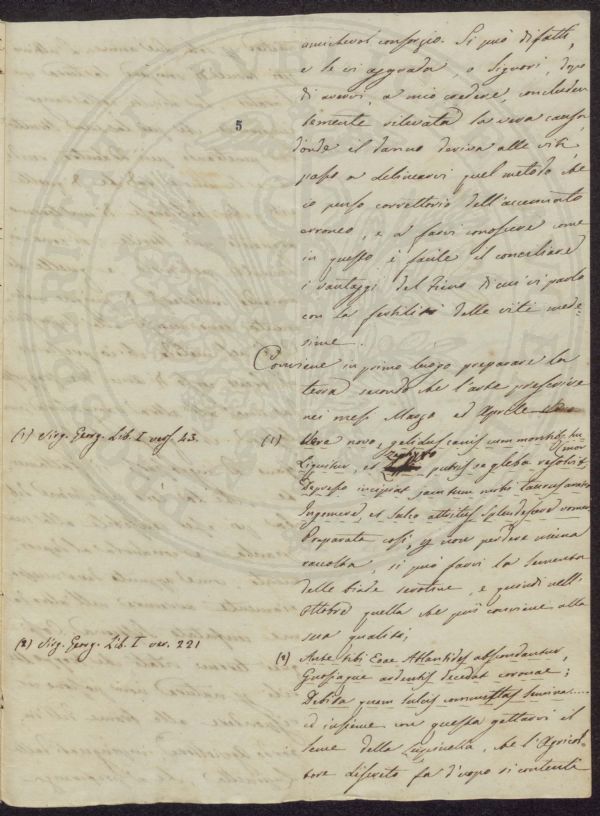 5
amichevol consorzio. Si può difatti,
e se vi aggrada, o Signori, dopo
di avervi, a mio credere, concluden
temente rilevata la vera causa,
donde il danno deriva alle viti,
passo a delinearvi quel metodo che
io penso correttorio dell'accennato
erroneo, e a farvi conoscere come
in questo è facile il conciliare
i vantaggi del Fieno di cui vi parlo
con la fertilità delle viti mede-
sime.
Conviene in primo luogo preparare la
terra secondo che l'arte prescrive
nei mesi Marzo ed Aprile
(1) Virg. Georg. Lib. I vers 43.
(1) Vere novo, gelidus canis cum montibus humor
Liquitur, et zephyro putris se gleba resolvit
Depresso incipiat jam tum mihi taurus aratro
Ingemere, et sulco attritus splendescere vomer.
Preparata così per non perdere niuna
raccolta, si può farvi la sementa
delle biade serotine, e quindi nell'
Ottobre quella che più conviene alla
sua qualità;
(2) Virg. Georg. Lib. I ver. 221
(2) Ante tibi Eoae Atlantides abscondantur,
Gnosiaque ardentis decedat coronae;
Debita quam sulcis committas semina....
ed insieme con questa gettarvi il
seme della Lupinella, che l'Agricol-
tore discreto fa d'uopo si contenti